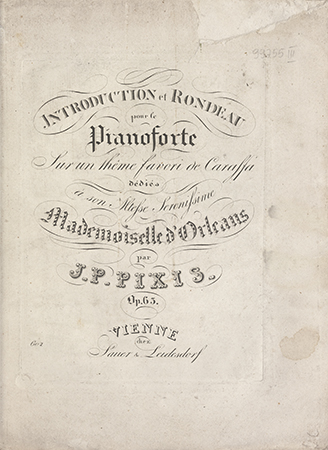 39255 III
INTRODUCTION et RONDEAU
pour le
Pianoforte
Sur un thême favori de Caraffa
dediés
a son Altesse Serenissime
Mademoiselle d'Orleans
par
J. P. PIXIS.
Op. 63.
VIENNE
chez
Sauer & Leidesdorf